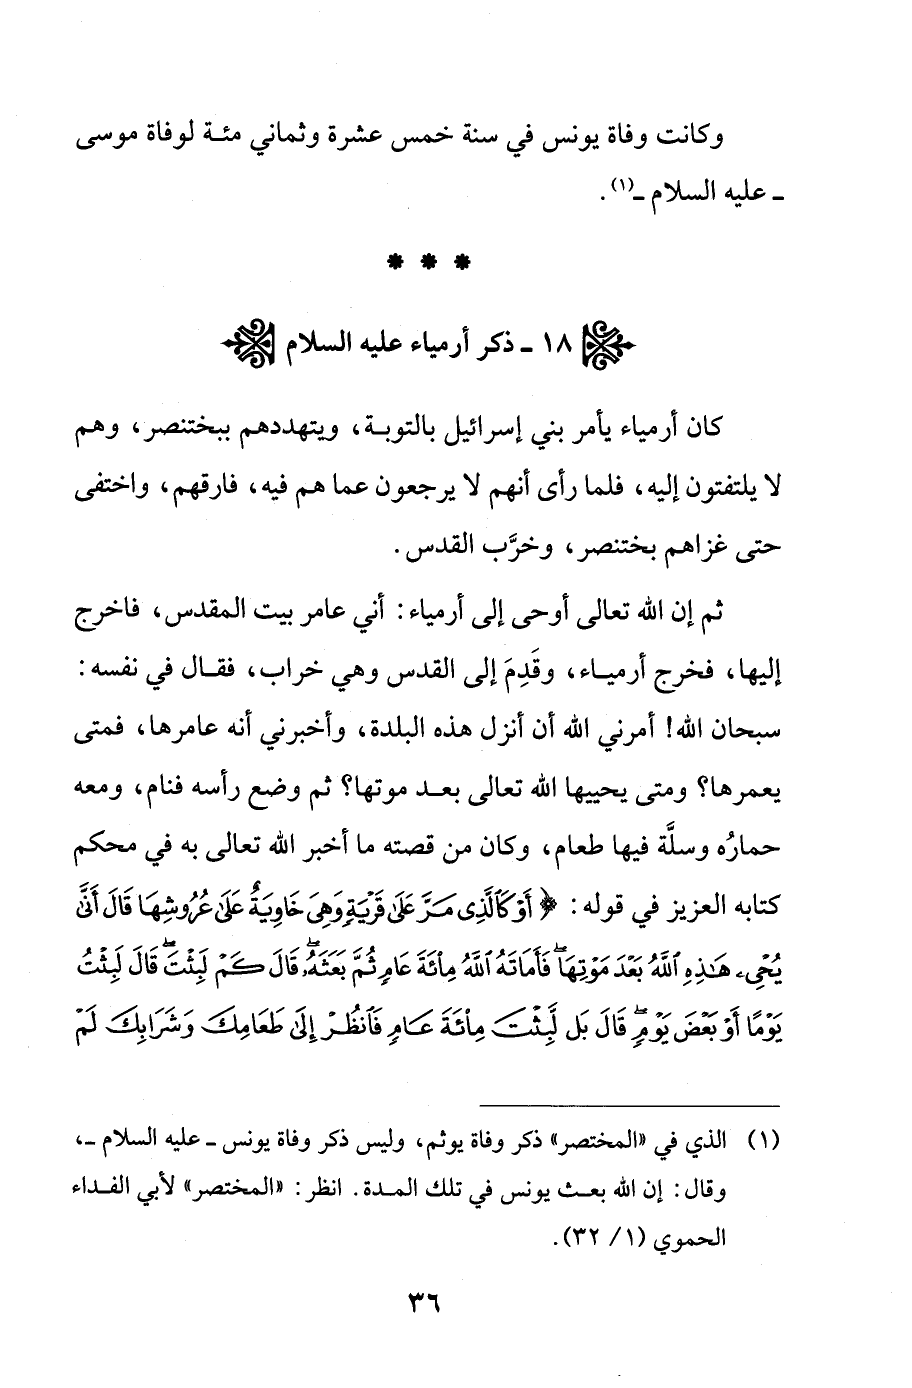 وكانت وفاة يونس في سنة خمس عشرة وثماني مئة لوفاة موسى
ـ عليه السلام ـ(١).
* * *
١٨ ـ ذكر أرمياء عليه السلام
كان أرمياء يأمر بني إسرائيل بالتوبة، ويتهددهم ببختنصر، وهم
لا يلتفتون إليه، فلما رأى أنهم لا يرجعون عما هم فيه، فارقهم، واختفى
حتى غزاهم بختنصر، وخرَّب القدس.
ثم إن الله تعالى أوحى إلى أرمياء: أني عامر بيت المقدس، فاخرج
إليها، فخرج أرمياء، وقَدِمَ إلى القدس وهي خراب، فقال في نفسه:
سبحان الله! أمرني الله أن أنزل هذه البلدة، وأخبرني أنه عامرها، فمتى
يعمرها؟ ومتى يحييها الله تعالى بعد موتها؟ ثم وضع رأسه فنام، ومعه
حمارُه وسلَّة فيها طعام، وكان من قصته ما أخبر الله تعالى به في محكم
كتابه العزيز في قوله: ﴿أَوْ كَٱلَّذِى مَرَّ عَلَىٰ قَرْيَةٍ وَهِىَ خَاوِيَةٌ عَلَىٰ عُرُوشِهَا قَالَ أَنَّىٰ
يُحْىِۦ هَٰذِهِ ٱللَّهُ بَعْدَ مَوْتِهَا ۖ فَأَمَاتَهُ ٱللَّهُ مِا۟ئَةَ عَامٍ ثُمَّ بَعَثَهُۥ ۖ قَالَ كَمْ لَبِثْتَ ۖ قَالَ لَبِثْتُ
يَوْمًا أَوْ بَعْضَ يَوْمٍ ۖ قَالَ بَل لَّبِثْتَ مِا۟ئَةَ عَامٍ فَٱنظُرْ إِلَىٰ طَعَامِكَ وَشَرَابِكَ لَمْ
(١) الذي في «المختصر» ذكر وفاة يوثم، وليس ذكر وفاة يونس ـ عليه السلام ـ،
وقال: إن الله بعث يونس في تلك المدة. انظر: «المختصر» لأبي الفداء
الحموي (١/ ٣٢).
٣٦